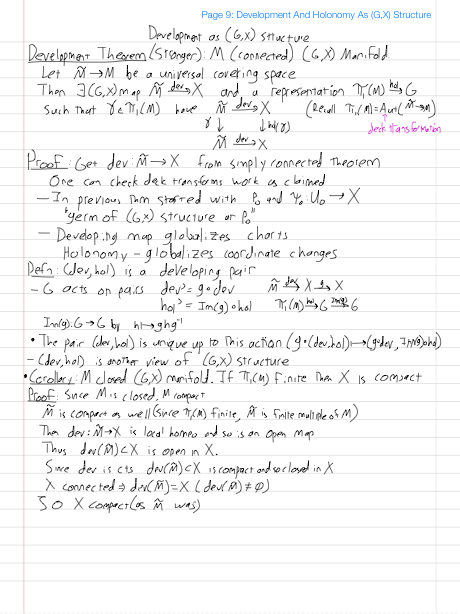 Page 9: Development And Holonomy As (G,X) Structure
Development as (G,X) structure
Development Theorem (Stronger): M (connected) (G,X) Manifold
Let M̃ → M be a universal covering space
Then ∃ (G,X) map M̃ dev→ X and a representation π₁(M) hol→ G
Such that γ ∈ π₁(M) have M̃ dev→ X (Recall π₁(M) = Aut(M̃→M))
γ ↓ ↓ hol(γ) deck transformation
M̃ dev→ X
Proof: Get dev: M̃ → X from simply connected theorem
One can check deck transforms work as claimed
– In previous thm started with P₀ and Ψ₀: U₀ → X
"germ of (G,X) structure at P₀"
– Developing map globalizes charts
Holonomy – globalizes coordinate changes
Defn: (dev, hol) is a developing pair
– G acts on pairs dev' = g∘dev M̃ dev→ X g→ X
hol' = Inn(g)∘hol π₁(M) hol→ G Inn(g)→ G
Inn(g): G→G by h↦ghg⁻¹
• The pair (dev, hol) is unique up to this action (g•(dev,hol)↦(g∘dev, Inn(g)∘hol)
– (dev, hol) is another view of (G,X) structure
• Corollary: M closed (G,X) manifold. If π₁(M) finite then X is compact
Proof: Since M is closed, M compact
M̃ is compact as well (since π₁(M) finite, M̃ is finite multiple of M)
Then dev: M̃→X is local homeo and so is an open map
Thus dev(M̃) ⊂ X is open in X.
Since dev is cts dev(M̃) ⊂ X is compact and so closed in X
X connected ⇒ dev(M̃) = X (dev(M̃) ≠ ∅)
So X compact (as M̃ was)